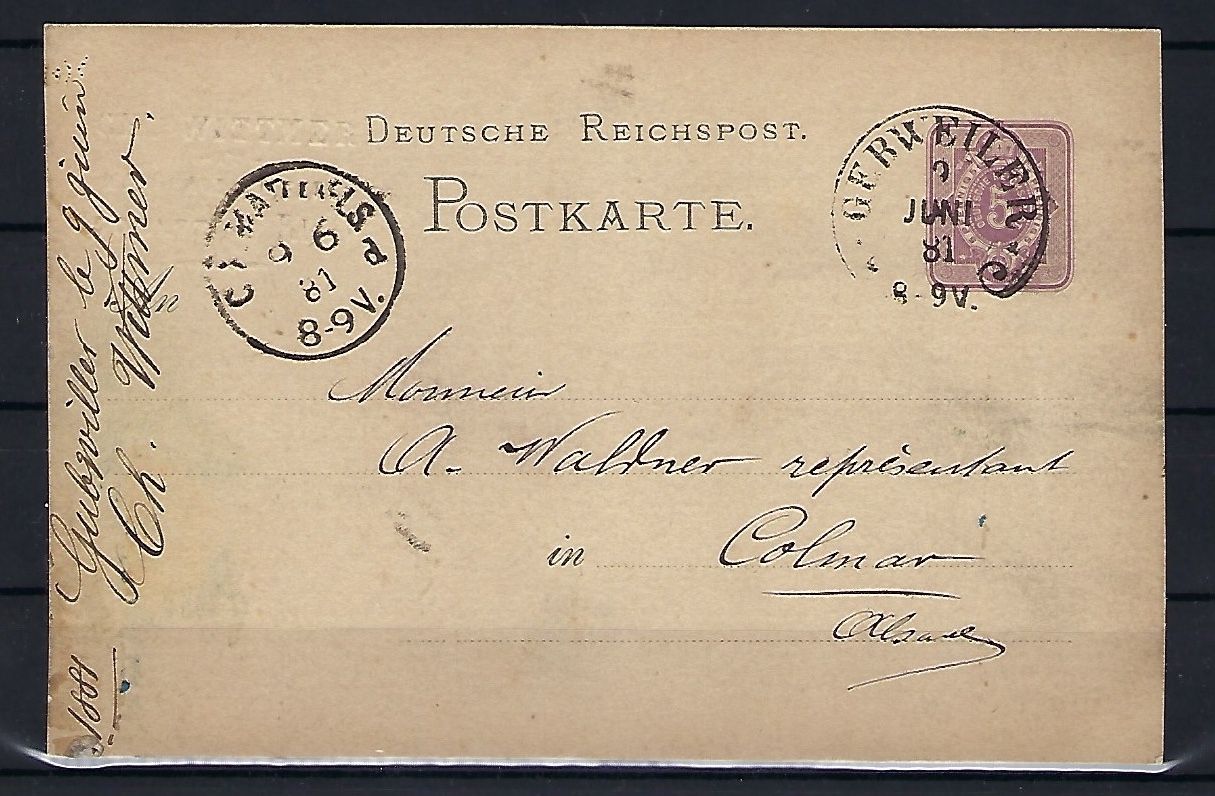 DEUTSCHE REICHSPOST.
POSTKARTE.
GEBWEILER
9
JUNI
81
8-9V.
5
9 6
81
8-9V.
Monsieur
A. Waldner représentant
in Colmar
Alsace
1881
Guebviller le 9 Juin
Ch. Widmer.